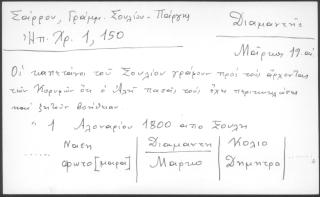 Σάρρου, Γράμμ. Σουλίου - Πάργης
Ἠπ. Χρ. 1, 150
Διαμαντής
Μάρκος 19 αἰ
Οἱ καπετάνοι τοῦ Σουλίου γράφουν πρὸς τοὺς ἄρχοντας
τῶν Κορυφῶν ὅτι ὁ Ἀλῆ πασᾶς τοὺς ἔχει περικυκλώσει
καὶ ζητοῦν βοήθειαν
" 1 Αλοναρίου 1800 απο Σουλη
Ναση | Διαμαντη | Κολιο
φωτο [μαρα] | Μαρκο | Δημητρο